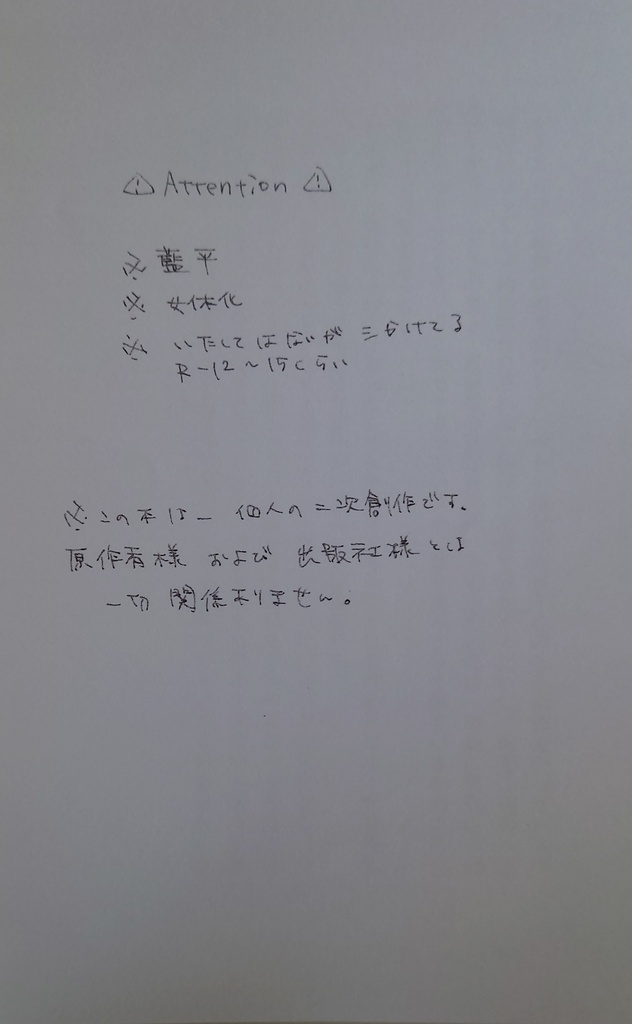 ⚠ Attention ⚠
※ 藍平
※ 女体化
※ いたしてはないが ミかけてる
R-12〜15くらい
※この本は一個人の二次創作です。
原作者様 および 出版社様とは
一切関係ありません。